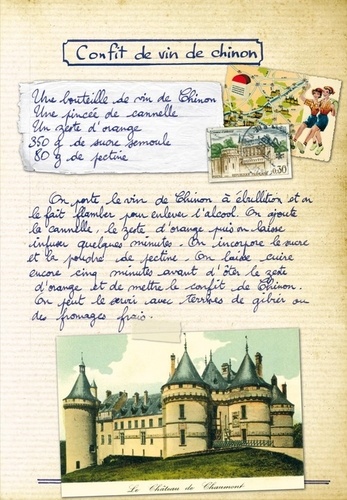 Confit de vin de chinon
Une bouteille de vin de Chinon
Une pincée de cannelle
Un zeste d'orange
350 g de sucre semoule
80 g de pectine
0,30
On porte le vin de Chinon à ébullition et on
le fait flamber pour enlever l'alcool. On ajoute
la cannelle, le zeste d'orange puis on laisse
infuser quelques minutes. On incorpore le sucre
et la poudre de pectine. On laisse cuire
encore cinq minutes avant d'ôter le zeste
d'orange et de mettre le confit de Chinon.
On peut le servir avec terrines de gibier ou
des fromages frais.
Le Château de Chaumont